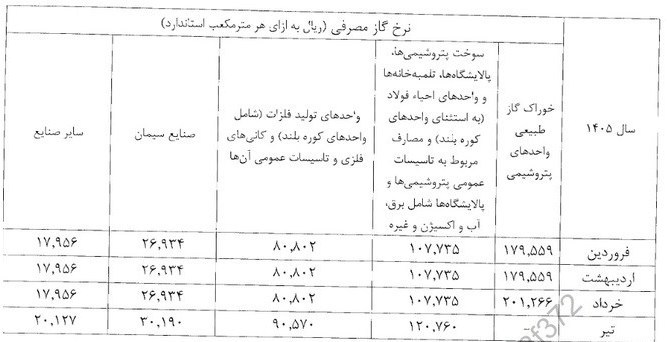 نرخ گاز مصرفی (ریال به ازای هر مترمکعب استاندارد)
سال ۱۴۰۵
خوراک گاز
طبیعی
واحدهای
پتروشیمی
سوخت پتروشیمی‌ها،
پالایشگاه‌ها، تلمبه‌خانه‌ها
و واحدهای احیاء فولاد
(به استثنای واحدهای
کوره بلند) و مصارف
مربوط به تاسیسات
عمومی پتروشیمی‌ها و
پالایشگاه‌ها شامل برق،
آب و اکسیژن و غیره
واحدهای تولید فلزات (شامل
واحدهای کوره بلند) و کانی‌های
فلزی و تاسیسات عمومی آن‌ها
صنایع سیمان
سایر صنایع
فروردین ۱۷۹,۵۵۹ ۱۰۷,۷۳۵ ۸۰,۸۰۲ ۲۶,۹۳۴ ۱۷,۹۵۶
اردیبهشت ۱۷۹,۵۵۹ ۱۰۷,۷۳۵ ۸۰,۸۰۲ ۲۶,۹۳۴ ۱۷,۹۵۶
خرداد ۲۰۱,۲۶۶ ۱۰۷,۷۳۵ ۸۰,۸۰۲ ۲۶,۹۳۴ ۱۷,۹۵۶
تیر - ۱۲۰,۷۶۰ ۹۰,۵۷۰ ۳۰,۱۹۰ ۲۰,۱۲۷